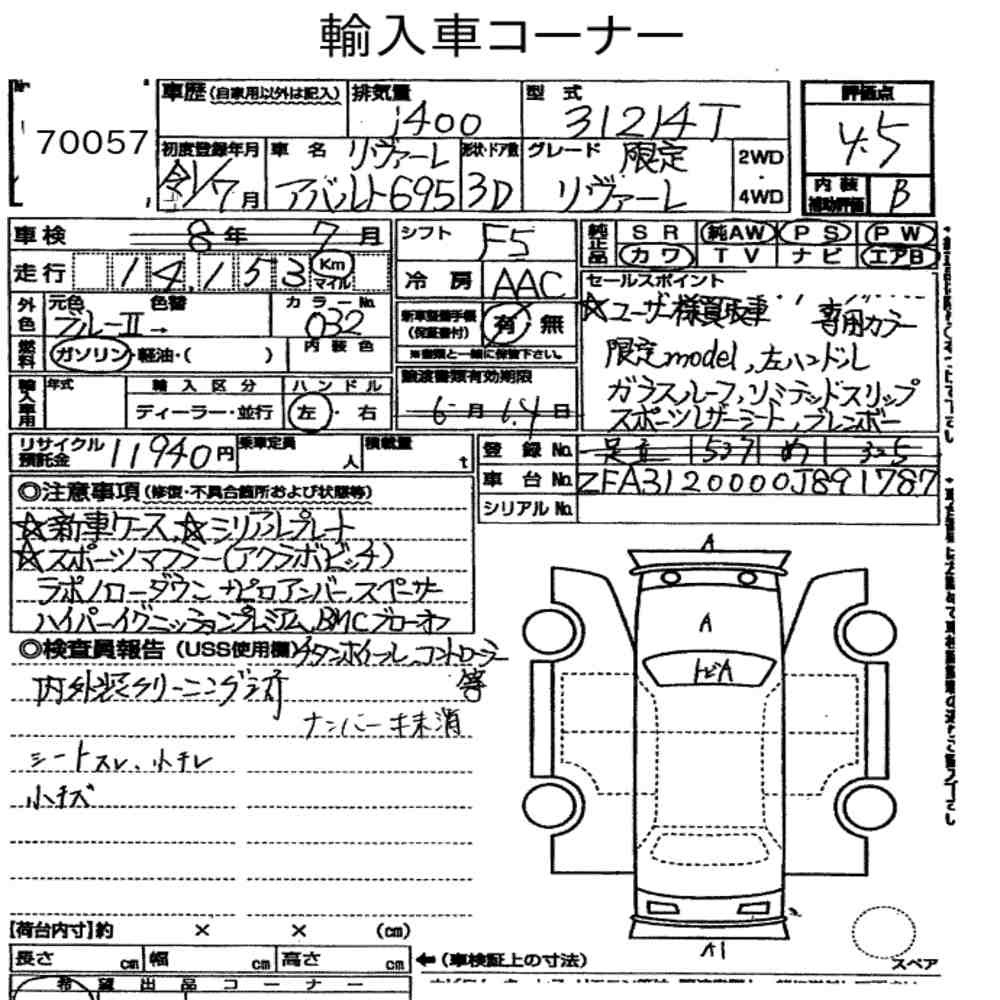 輸入車コーナー
70057
車歴(自家用以外は記入) 排気量 1400 型式 31214T 評価点 4.5
初度登録年月 令1/7月 車名 リヴァーレ アバルト695 形状・ドア数 3D グレード 限定 リヴァーレ 2WD・4WD 内装補助評価 B
車検 8年 7月 シフト F5 純正品 SR 純AW PS PW
走行 14,153 Km マイル 冷房 AAC カワ TV ナビ エアB
外色 元色 ブルーII→ 色替 カラーNo. 032 新車整備手帳(保証書付) 有・無
※書類と一緒に保管下さい。
燃料 ガソリン・軽油・( ) 内装色
輸入車用 年式 輸入区分 ディーラー・並行 ハンドル 左・右 譲渡書類有効期限 6月14日
セールスポイント
☆ユーザー様買取車 専用カラー
限定model,左ハンドル
ガラスルーフ,リミテッドスリップ
スポーツレザーシート,ブレンボー
リサイクル預託金 11940円 乗車定員 人 積載量 t
登録No. 足立 537 め 325
車台No. ZFA3120000J891787
シリアルNo.
◎注意事項(修復・不具合箇所および状態等)
☆新車ケース,☆シリアルプレート
☆スポーツマフラー(アクラポビッチ)
ラポノローダウン ナピロアンバースペーサー
ハイパーイグニッションプレミアム,BMCブローオフ
◎検査員報告(USS使用欄) チタンホイール,コントローラー
内外装クリーニング済 等
ナンバー未抹消
シートスレ、小チレ
小キズ
A
A
トビA
A1
【荷台内寸】約 × × (cm)
長さ cm 幅 cm 高さ cm ←(車検証上の寸法)
スペア
希望出品コーナー